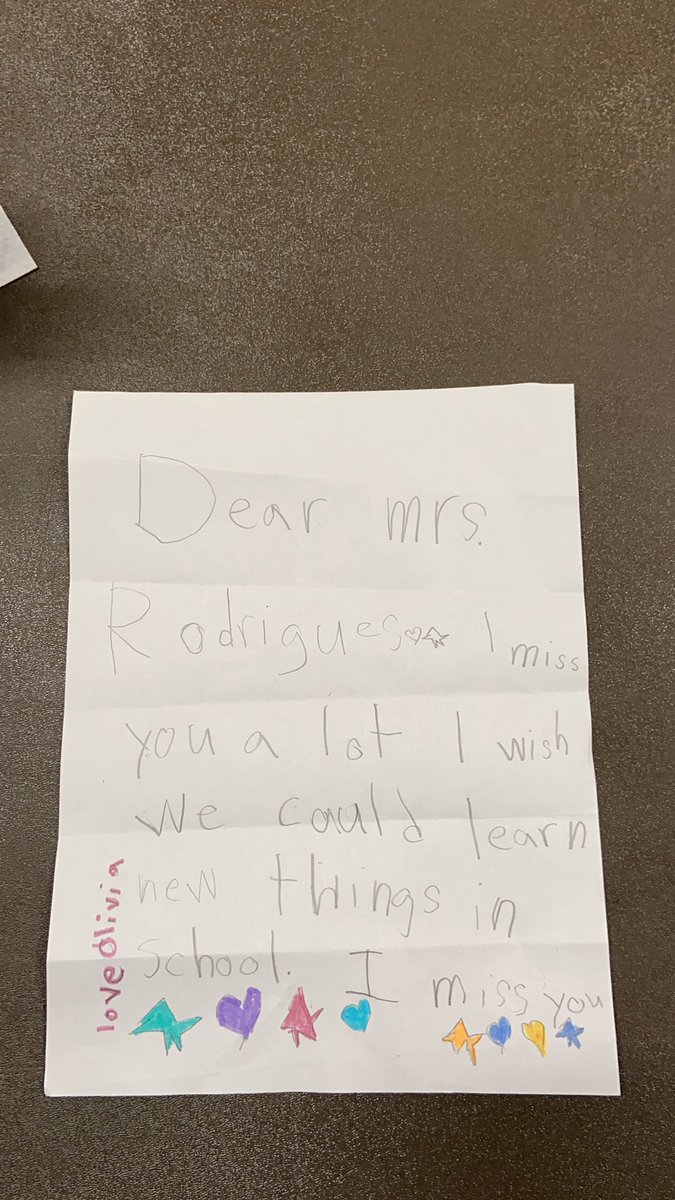 Dear mrs.
Rodrigues I miss
you a lot I wish
we could learn
new things in
school. I miss you
love Olivia